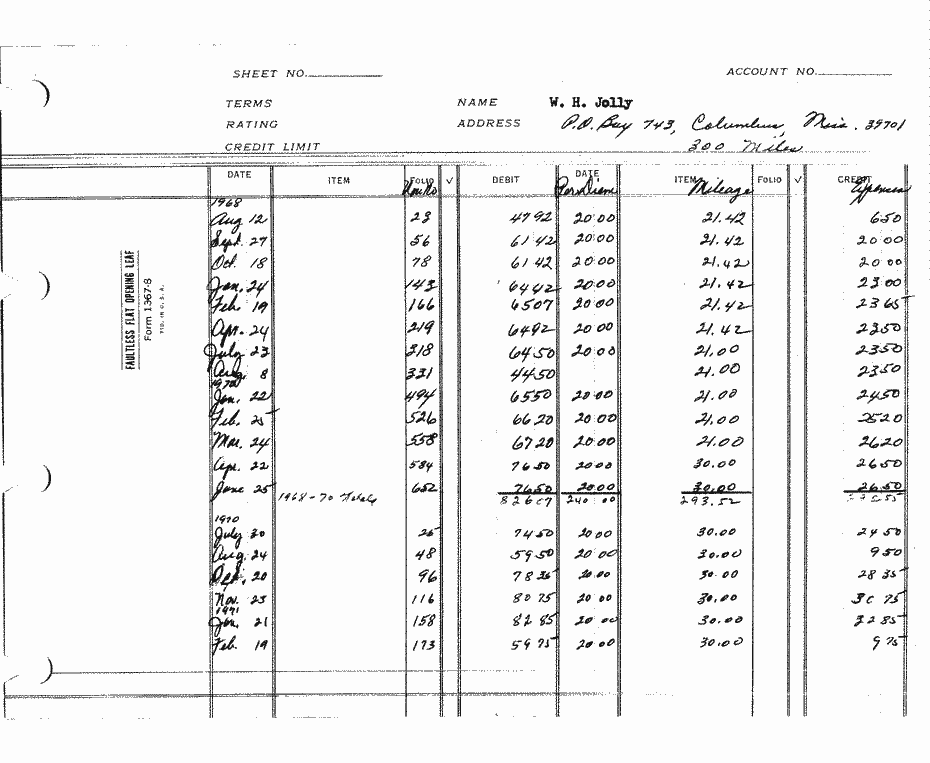 SHEET NO. ACCOUNT NO.
TERMS NAME W. H. Jolly
RATING ADDRESS P.O. Box 743, Columbus, Miss. 39701
CREDIT LIMIT 300 Miles
DATE ITEM FOLIO √ DEBIT DATE ITEM FOLIO √ CREDIT
Per Diem Mileage Expenses
1968
Aug 12 23 47 92 20 00 21.42 6 50
Sept. 27 56 61 42 20 00 21.42 20 00
Oct. 18 78 61 42 20 00 21.42 20 00
Jan. 24 143 64 42 20 00 21.42 23 00
Feb. 19 166 65 07 20 00 21.42 23 65
Apr. 24 219 64 92 20 00 21.42 23 50
July 23 318 64 50 20 00 21.00 23 50
Aug. 8 331 44 50 21.00 23 50
1970
Jan. 22 494 65 50 20 00 21.00 24 50
Feb. 25 526 66 20 20 00 21.00 25 20
Mar. 24 558 67 20 20 00 21.00 26 20
Apr. 22 584 76 50 20 00 30.00 26 50
June 25 652 76 50 20 00 30.00 26 50
1968-70 Totals 826 07 240 00 293.52
1970
July 30 25 74 50 20 00 30.00 24 50
Aug. 24 48 59 50 20 00 30.00 9 50
20 96 78 35 20 00 30.00 28 35
Nov. 23 116 80 75 20 00 30.00 30 75
1971
Jan. 21 158 82 85 20 00 30.00 32 85
Feb. 19 173 59 75 20 00 30.00 9 75
FAULTLESS FLAT OPENING LEAF
Form 1367-8